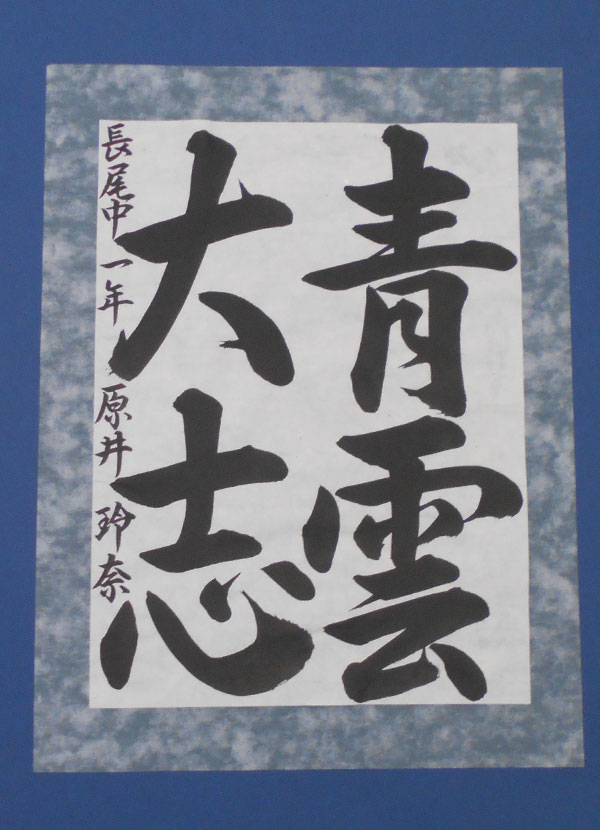 青雲
大志
長尾中一年 原井 玲奈